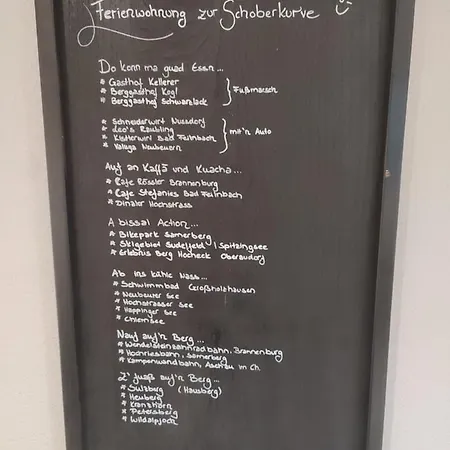 Ferienwohnung zur Schoberkurve
Do konn ma guad Essn...
* Gasthof Kellerer
* Berggasthof Kogl
* Berggasthof Schwarzlack
Fußmarsch
* Schneiderwirt Nussdorf
* Leo's Raubling
* Klosterwirt Bad Feilnbach
* Kalua Neubeuern
mit'n Auto
Auf an Kaffä und Kuacha...
* Cafe Rössler Brannenburg
* Cafe Stefanies Bad Feilnbach
* Dinaler Hochstrass
A bissal Action...
* Bikepark Samerberg
* Skigebiet Sudelfeld | Spitzingsee
* Erlebnis Berg Hocheck Oberaudorf
Ab ins kühle Nass...
* Schwimmbad Großholzhausen
* Neubeurer See
* Hochstrasser See
* Happinger See
* Chiemsee
Nauf auf'n Berg...
* Wendelsteinzahnradbahn, Brannenburg
* Hochriesbahn, Samerberg
* Kampenwandbahn, Aschau im Ch.
Z' fuaß auf'n Berg...
* Sulzberg (Hausberg)
* Heuberg
* Kranzhorn
* Petersberg
* Wildalpjoch